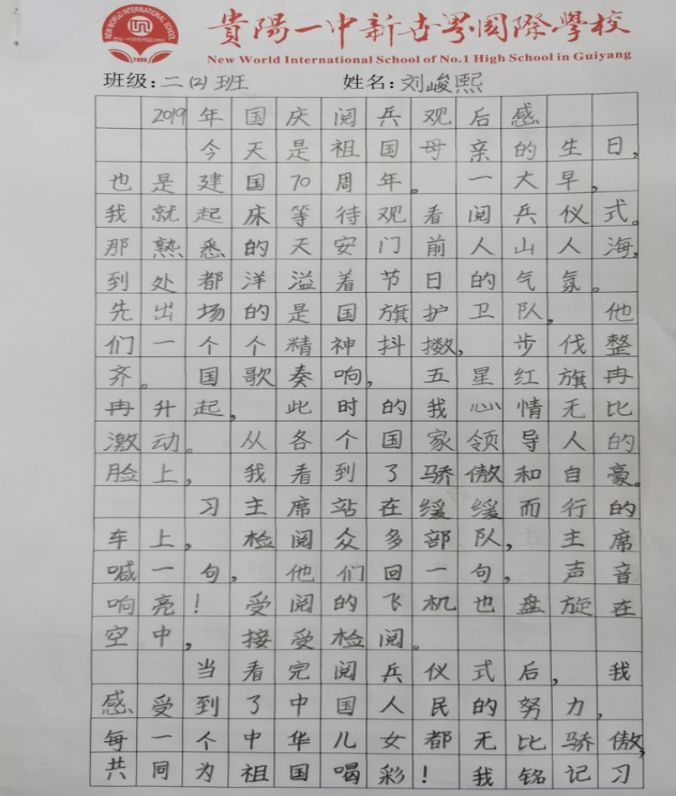 NEW WORLD INTERNATIONAL SCHOOL
貴陽一中新古㟧國際學校
New World International School of No.1 High School in Guiyang
班级:二(2)班 姓名:刘峻熙
2019年国庆阅兵观后感
今天是祖国母亲的生日,
也是建国70周年。一大早,
我就起床等待观看阅兵仪式。
那熟悉的天安门前人山人海,
到处都洋溢着节日的气氛。
先出场的是国旗护卫队,他
们一个个精神抖擞,步伐整
齐。国歌奏响,五星红旗冉
冉升起,此时的我心情无比
激动。从各个国家领导人的
脸上,我看到了骄傲和自豪。
习主席站在缓缓而行的
车上,检阅众多部队,主席
喊一句,他们回一句,声音
响亮!受阅的飞机也盘旋在
空中,接受检阅。
当看完阅兵仪式后,我
感受到了中国人民的努力,
每一个中华儿女都无比骄傲,
共同为祖国喝彩!我铭记习